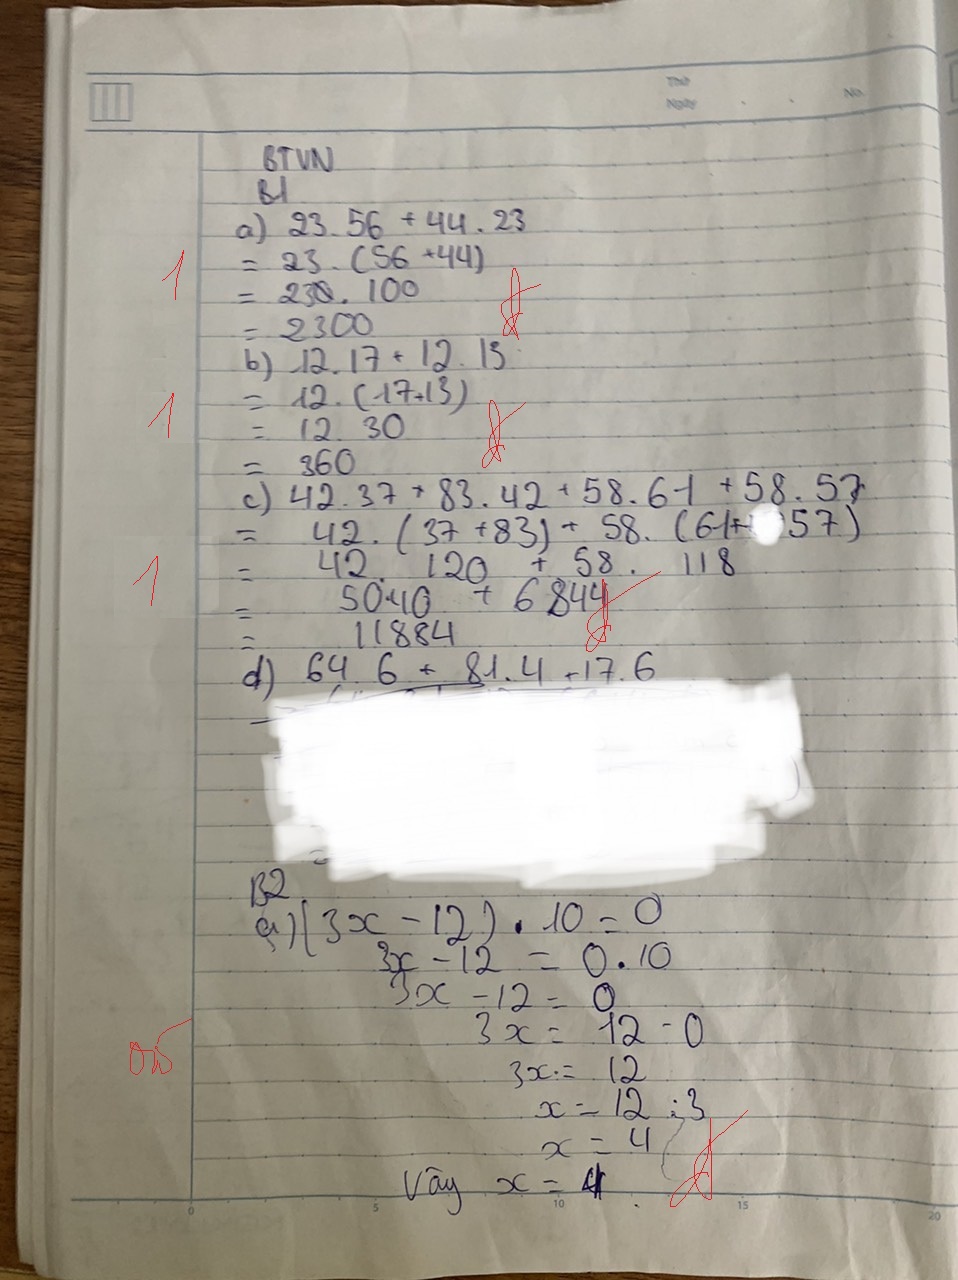 Thứ
Ngày . . No.
BTVN
B1
a) 23.56 + 44.23
= 23.(56+44)
1
= 230.100
= 2300
b) 12.17 + 12.13
= 12.(17+13)
1
= 12.30
= 360
c) 42.37 + 83.42 + 58.61 + 58.57
= 42.(37+83) + 58.(61+57)
= 42.120 + 58.118
1
= 5040 + 6844
= 11884
d) 64.6 + 81.4 + 17.6
=
B2
a) (3x - 12).10 = 0
3x - 12 = 0.10
3x - 12 = 0
3x = 12 - 0
3x = 12
x = 12:3
x = 4
Vậy x = 4
0 5 10 15 20